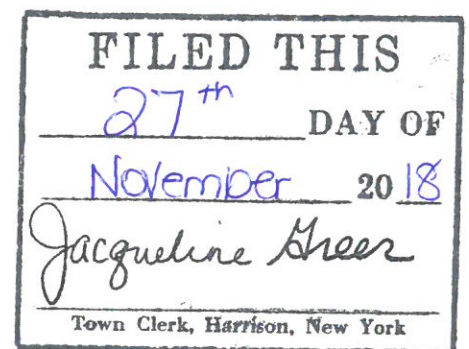 FILED THIS
27th DAY OF
November 20 18
Jacqueline Greer
Town Clerk, Harrison, New York